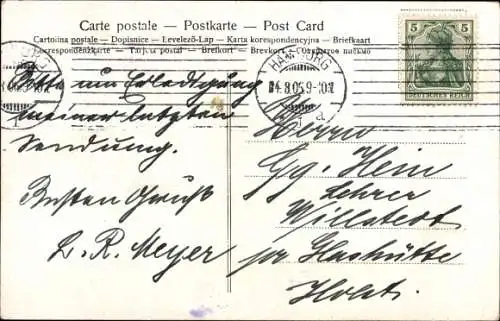 Carte postale — Postkarte — Post Card
Cartolina postale — Dopisnice — Levelező-Lap — Karta korespondencyjna — Briefkaart
Correspondenzkarte — Tarjeta postal — Brefkort — Brevkort — Открытое письмо
5 5
DEUTSCHES REICH
HAMBURG
14.8.05.9-10V
1 a
Bitte um Erledigung
meiner letzten
Sendung.
Besten Gruß
L. R. Meyer
Herrn
Gg. Hein
Lehrer
Willstedt
pr Glashütte
Holst.